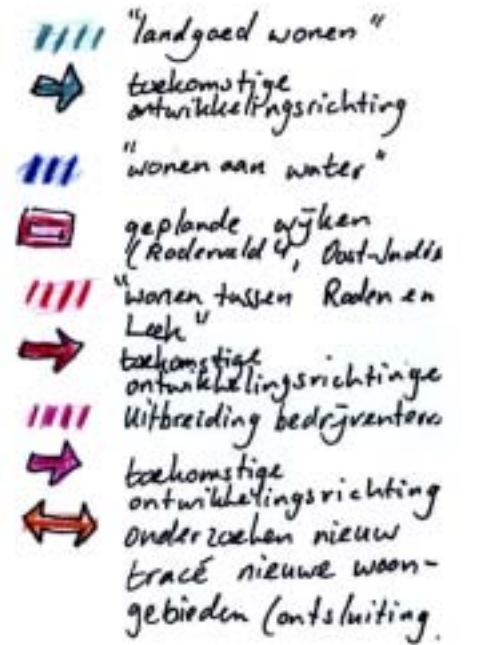 "landgoed wonen"
toekomstige
ontwikkelingsrichting
"wonen aan water"
geplande wijken
(Roderveld 4, Oost-Indië
"wonen tussen Roden en
Leek"
toekomstige
ontwikkelingsrichtinge
Uitbreiding bedrijventerr
toekomstige
ontwikkelingsrichting
onderzoeken nieuw
tracé nieuwe woon-
gebieden (ontsluiting